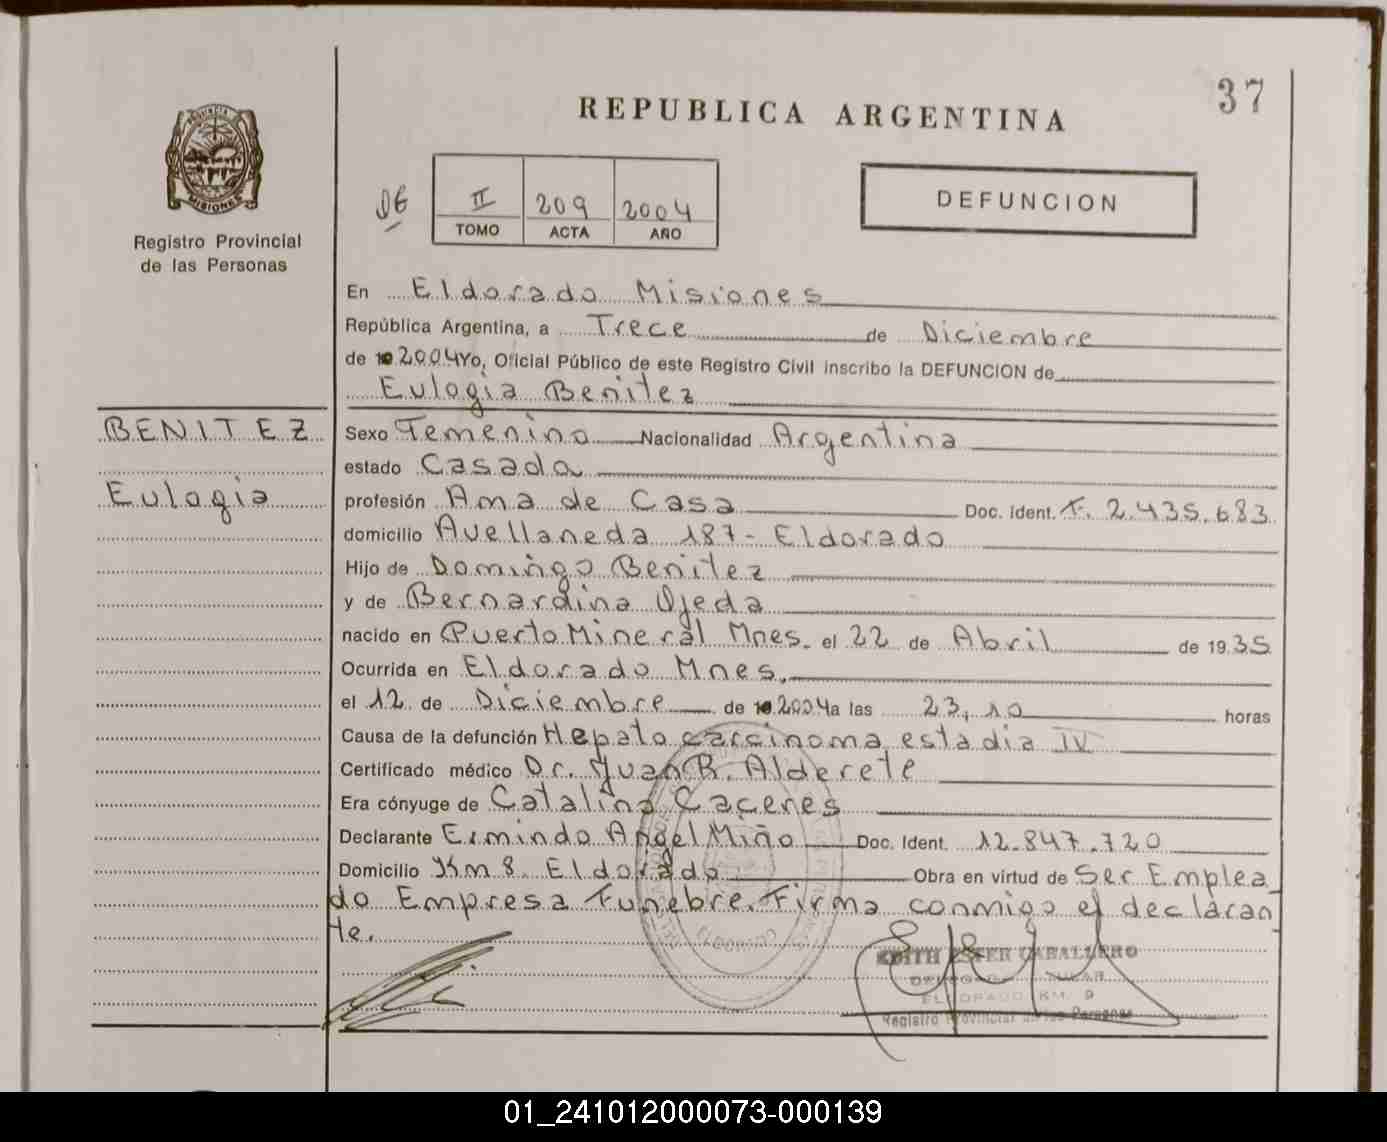 37
REPUBLICA ARGENTINA
PROVINCIA
MISIONES
Registro Provincial
de las Personas
II 209 2004
TOMO ACTA AÑO
DEFUNCION
En Eldorado Misiones
República Argentina, a Trece de Diciembre
de 2004 Yo, Oficial Público de este Registro Civil inscribo la DEFUNCION de
Eulogia Benitez
BENITEZ
Eulogia
Sexo Femenino Nacionalidad Argentina
estado Casada
profesión Ama de Casa Doc. Ident. F. 2.435.683
domicilio Avellaneda 187 - Eldorado
Hijo de Domingo Benitez
y de Bernardina Ojeda
nacido en Puerto Mineral Mnes. el 22 de Abril de 1935
Ocurrida en Eldorado Mnes.
el 12 de Diciembre de 2004 a las 23,10 horas
Causa de la defunción Hepato carcinoma estadia IV
Certificado médico Dr. Juan R. Alderete
Era cónyuge de Catalino Caceres
Declarante Ermindo Angel Miño Doc. Ident. 12.847.720
Domicilio Km 8. Eldorado Obra en virtud de Ser Emplea
do Empresa Funebre. Firma conmigo el declaran
te.
ELDORADO
EDITH ESTER CABALLERO
ELDORADO KM. 9
Registro Provincial de las Personas
01_241012000073-000139